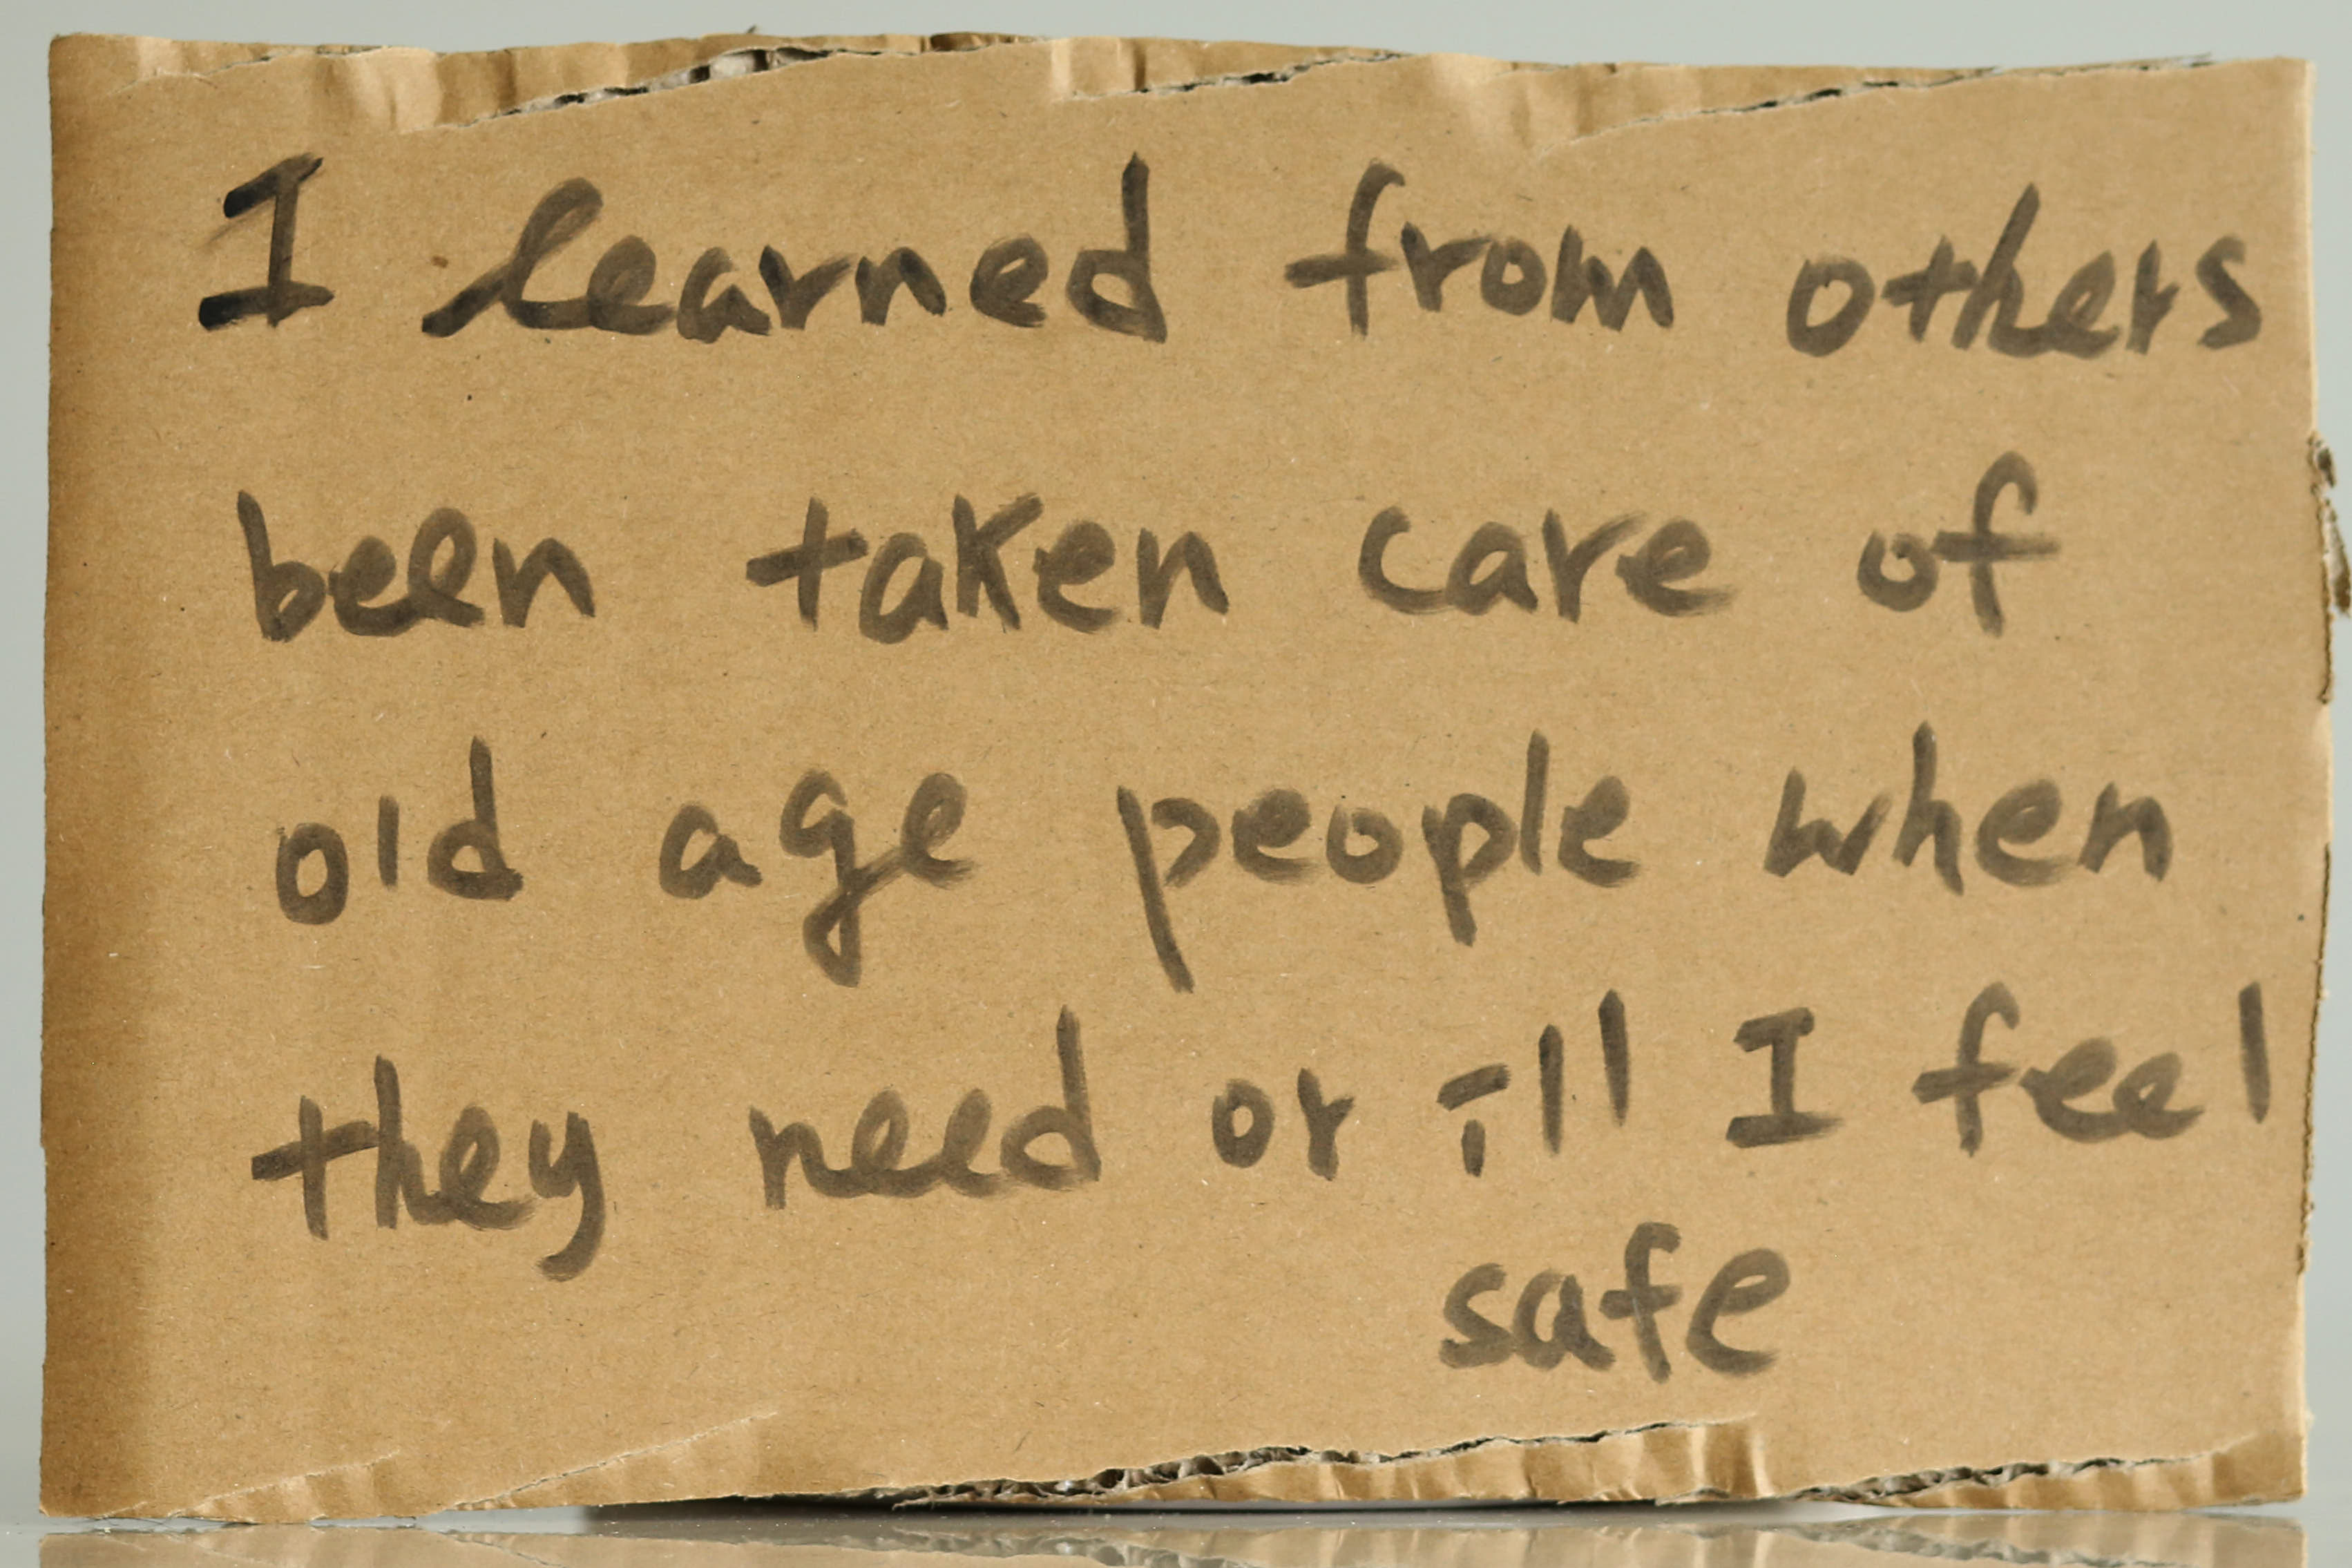 I learned from others
been taken care of
old age people when
they need or ill I feel
safe